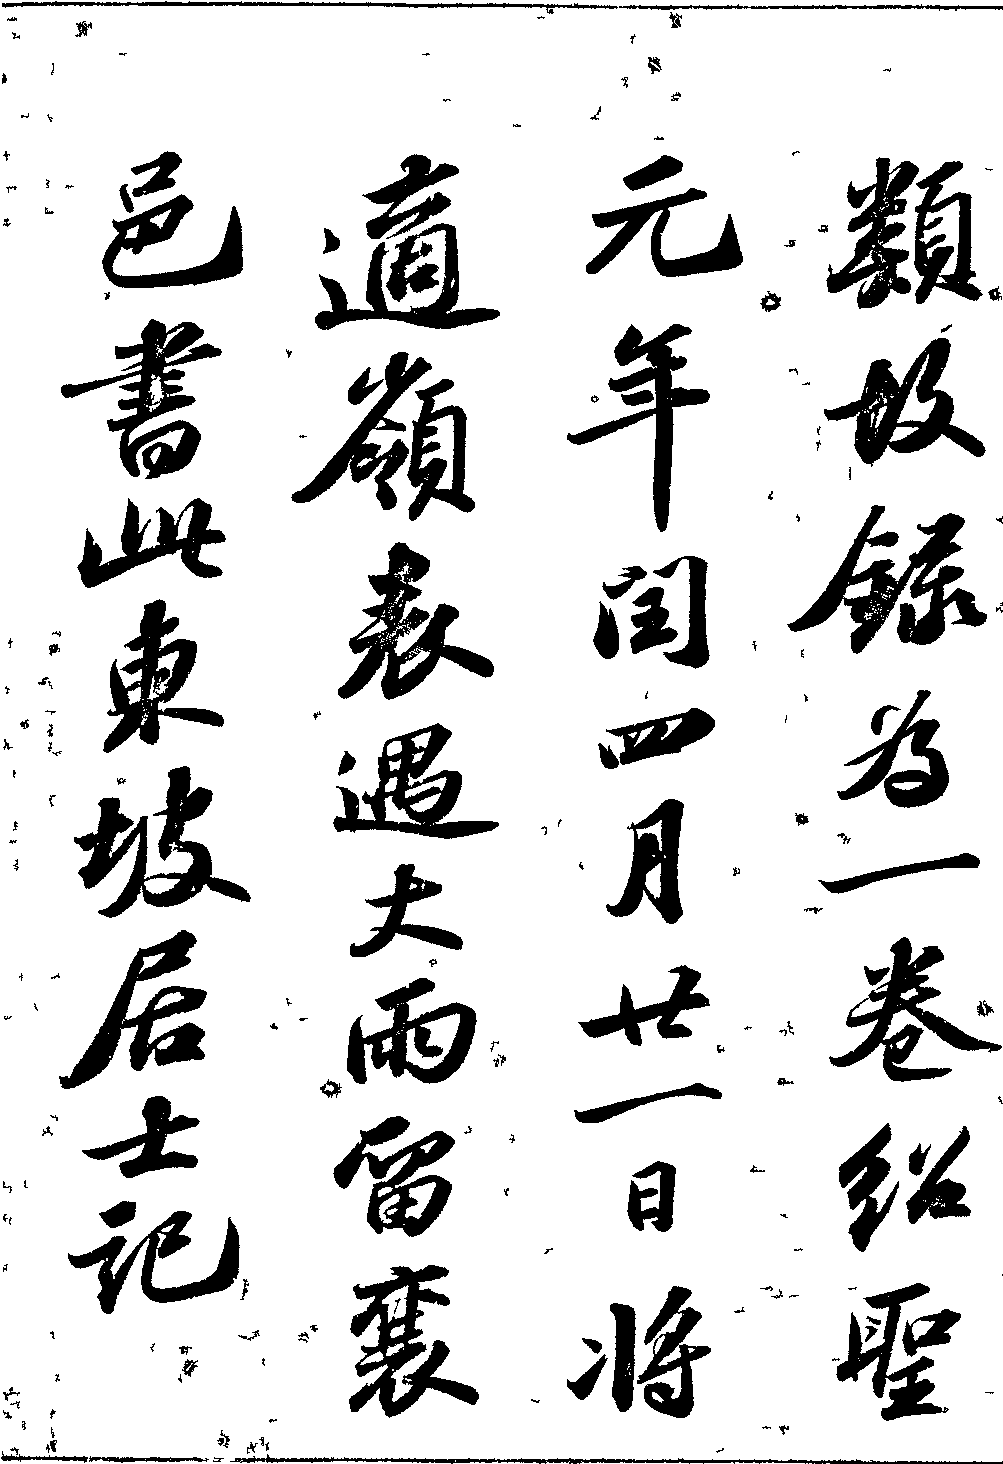 類故録為一卷紹聖
元年閏四月廿一日將
適嶺表遇大雨留襄
邑書此東坡居士記